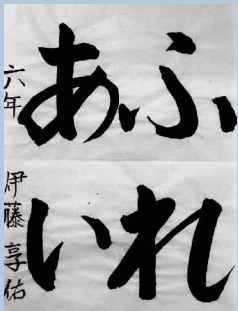 ふれ
あい
六年 伊藤享佑